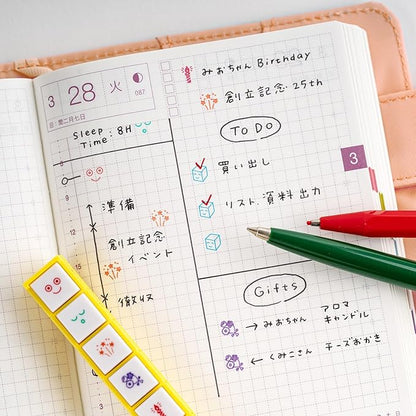 3 28 火
087
日:閏二月七日
Sleep Time: 8H
みおちゃん Birthday
創立記念 25th
To Do
買い出し
リスト、資料出力
3
8
9
準備
創立記念
イベント
撤収
Gifts
→ みおちゃん アロマ
キャンドル
← くみこさん チーズおかき